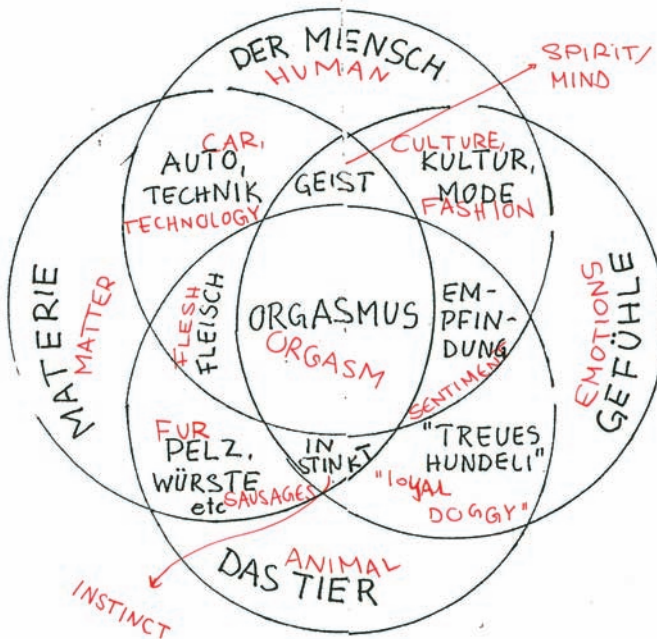 DER MIENSCH
HUMAN
SPIRIT/
MIND
CAR,
AUTO,
TECHNIK
TECHNOLOGY
GEIST
CULTURE,
KULTUR,
MODE
FASHION
MATERIE
MATTER
FLESH
FLEISCH
ORGASMUS
ORGASM
EM-
PFIN-
DUNG
SENTIMENT
EMOTIONS
GEFÜHLE
FUR
PELZ,
WÜRSTE
etc SAUSAGES
IN
STINKT
"TREUES
HUNDELI"
"loyAL
DOGGY"
ANIMAL
DAS TIER
INSTINCT